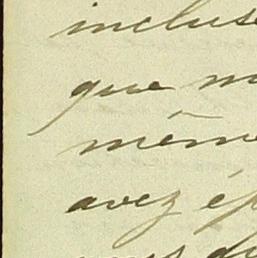 incluse
que m
même
avez ép